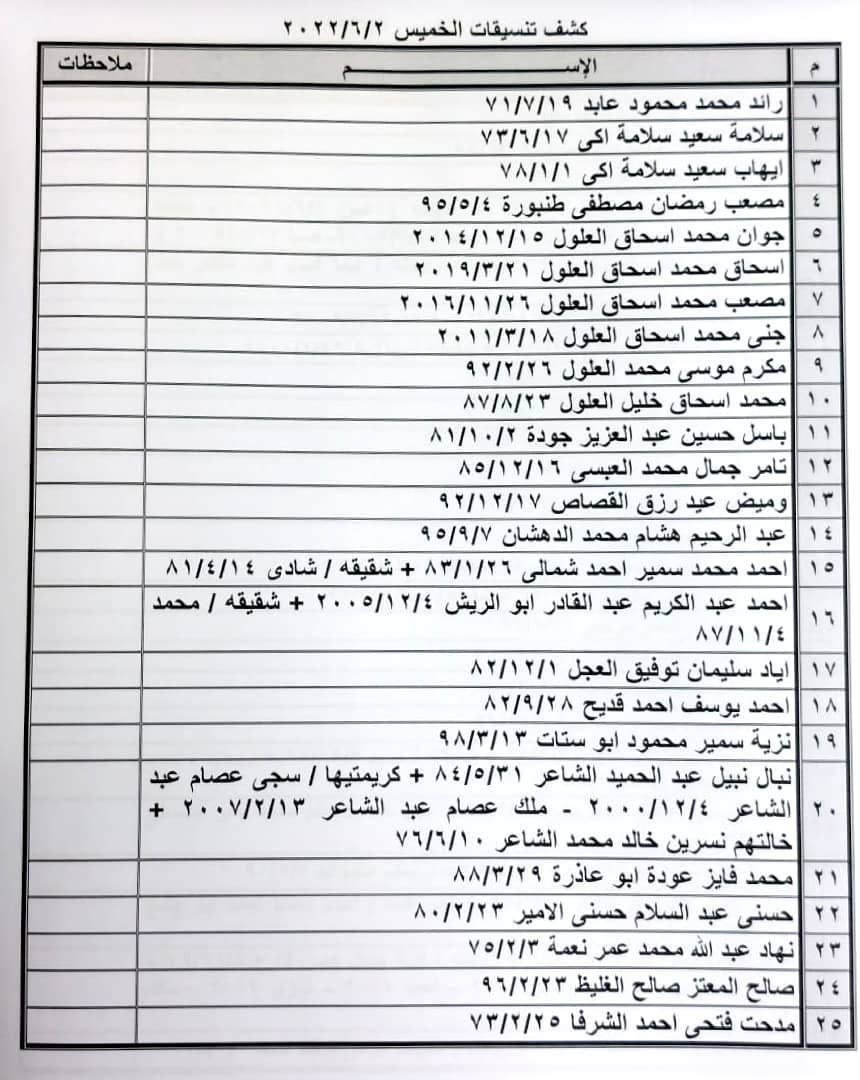 كشف تنسيقات الخميس ٢٠٢٢/٦/٢
م الإســـــــــــــــم ملاحظات
١ رائد محمد محمود عابد ٧١/٧/١٩
٢ سلامة سعيد سلامة اكى ٧٣/٦/١٧
٣ ايهاب سعيد سلامة اكى ٧٨/١/١
٤ مصعب رمضان مصطفى طنبورة ٩٥/٥/٤
٥ جوان محمد اسحاق العلول ٢٠١٤/١٢/١٥
٦ اسحاق محمد اسحاق العلول ٢٠١٩/٣/٢١
٧ مصعب محمد اسحاق العلول ٢٠١٦/١١/٢٦
٨ جنى محمد اسحاق العلول ٢٠١١/٣/١٨
٩ مكرم موسى محمد العلول ٩٢/٢/٢٦
١٠ محمد اسحاق خليل العلول ٨٧/٨/٢٣
١١ باسل حسين عبد العزيز جودة ٨١/١٠/٢
١٢ تامر جمال محمد العبسى ٨٥/١٢/١٦
١٣ وميض عيد رزق القصاص ٩٢/١٢/١٧
١٤ عبد الرحيم هشام محمد الدهشان ٩٥/٩/٧
١٥ احمد محمد سمير احمد شمالى ٨٣/١/٢٦ + شقيقه / شادى ٨١/٤/١٤
١٦ احمد عبد الكريم عبد القادر ابو الريش ٢٠٠٥/١٢/٤ + شقيقه / محمد
٨٧/١١/٤
١٧ اياد سليمان توفيق العجل ٨٢/١٢/١
١٨ احمد يوسف احمد قديح ٨٢/٩/٢٨
١٩ نزية سمير محمود ابو ستات ٩٨/٣/١٣
٢٠ نبال نبيل عبد الحميد الشاعر ٨٤/٥/٣١ + كريمتيها / سجى عصام عبد
الشاعر ٢٠٠٠/١٢/٤ - ملك عصام عبد الشاعر ٢٠٠٧/٢/١٣ +
خالتهم نسرين خالد محمد الشاعر ٧٦/٦/١٠
٢١ محمد فايز عودة ابو عاذرة ٨٨/٣/٢٩
٢٢ حسنى عبد السلام حسنى الامير ٨٠/٢/٢٣
٢٣ نهاد عبد الله محمد عمر نعمة ٧٥/٢/٣
٢٤ صالح المعتز صالح الغليظ ٩٦/٢/٢٣
٢٥ مدحت فتحى احمد الشرفا ٧٣/٢/٢٥